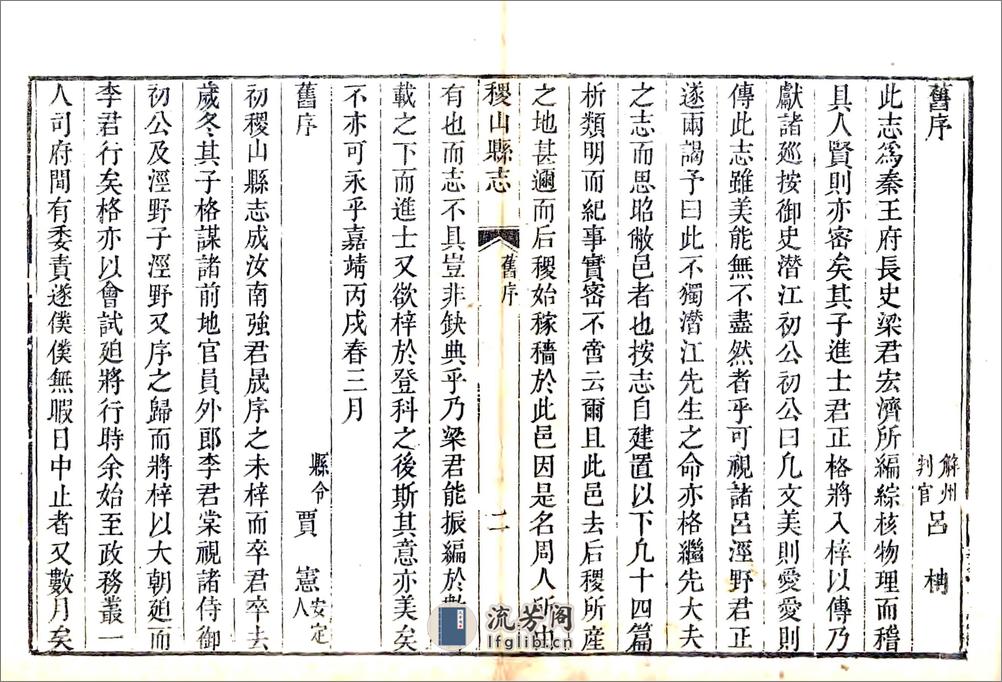 舊序
解州判官呂柟
此志爲秦王府長史梁君宏濟所編綜核物理而稽
具人賢則亦密矣其子進士君正格將入梓以傳乃
獻諸廵按御史潛江初公初公曰凢文美則愛愛則
傳此志雖美能無不盡然者乎可視諸呂涇野君正
遂兩謁予曰此不獨潛江先生之命亦格繼先大夫
之志而思昭敝邑者也按志自建置以下凢十四篇
析類明而紀事實密不啻云爾且此邑去后稷所產
之地甚邇而后稷始稼穡於此邑因是名周人所
稷山縣志
舊序
二
有也而志不具豈非缺典乎乃梁君能振編於
載之下而進士又欲梓於登科之後斯其意亦美矣
不亦可永乎嘉靖丙戌春三月
舊序
縣令賈憲安定人
初稷山縣志成汝南強君晟序之未梓而卒君卒去
歲冬其子格謀諸前地官員外郎李君棠視諸侍御
初公及涇野子涇野又序之歸而將梓以大朝廹而
李君行矣格亦以會試廹將行時余始至政務叢一
人司府間有委責遂僕僕無暇日中止者又數月矣
流芳阁
lfglib.cn